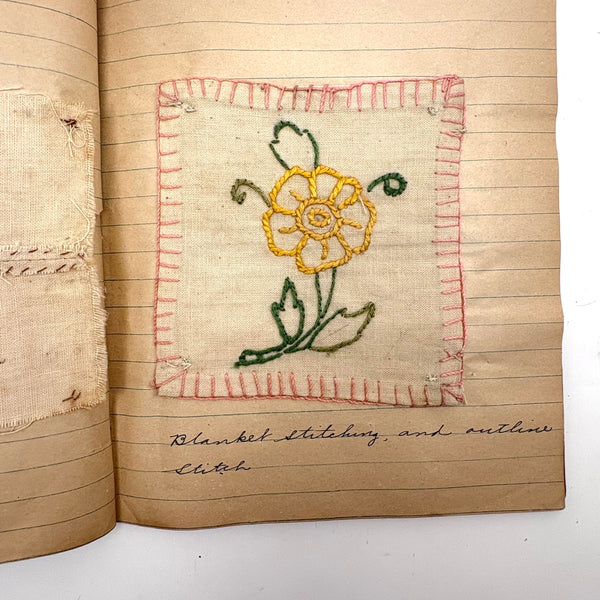 Blanket stitching, and outline
stitch